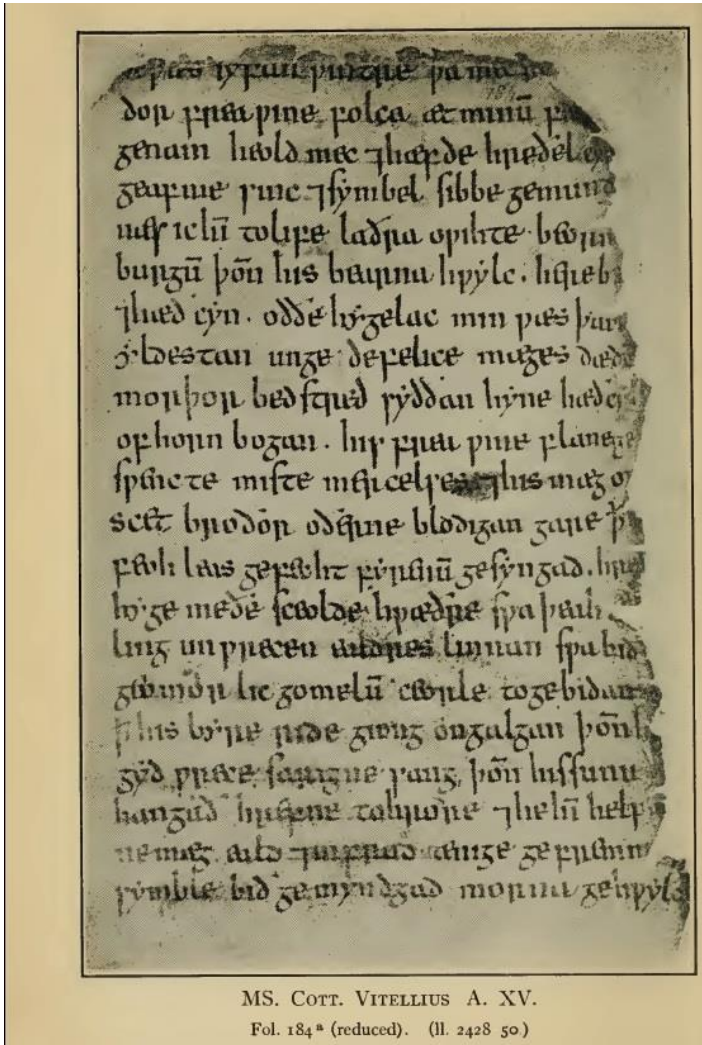 ƿæs syfan ƿintre þa mec
dor frea ƿine folca æt minū
genam heold mec ⁊ hæfde hreðel
geaf me sinc ⁊ symbel sibbe gemund
næs ic hī to life laðra oƿihte beorn in
burgū þōn his bearna hƿylc. hereb
⁊ hæð cyn. oððe hygelac min ƿæs þam
yldestan unge defelice mæges dæd
morþor bed stred syððan hyne hæðc
of horn bogan. his frea ƿine flane ge
sƿencte miste mercelses ⁊ his mæg of
scet broðor oðerne blodigan gare ꝥ
feoh leas gefeoht fyrenū gesyngad. hre
hyge meðe sceolde hƿæðre sƿa þeah
ling unƿrecen ealdres linnan sƿa bið
geomor lic gomelū ceorle to gebidan
ꝥ his byre ride giong on galgan þōn h
gyd ƿrece sarigne sang, þōn his sunu
hangað hrefne to hroðre ⁊ he hī helpe
ne mæg eald ⁊ in frod ænige gefremm
symble bið gemyndgad morna gehƿylc
MS. COTT. VITELLIUS A. XV.
Fol. 184ª (reduced). (ll. 2428 50)